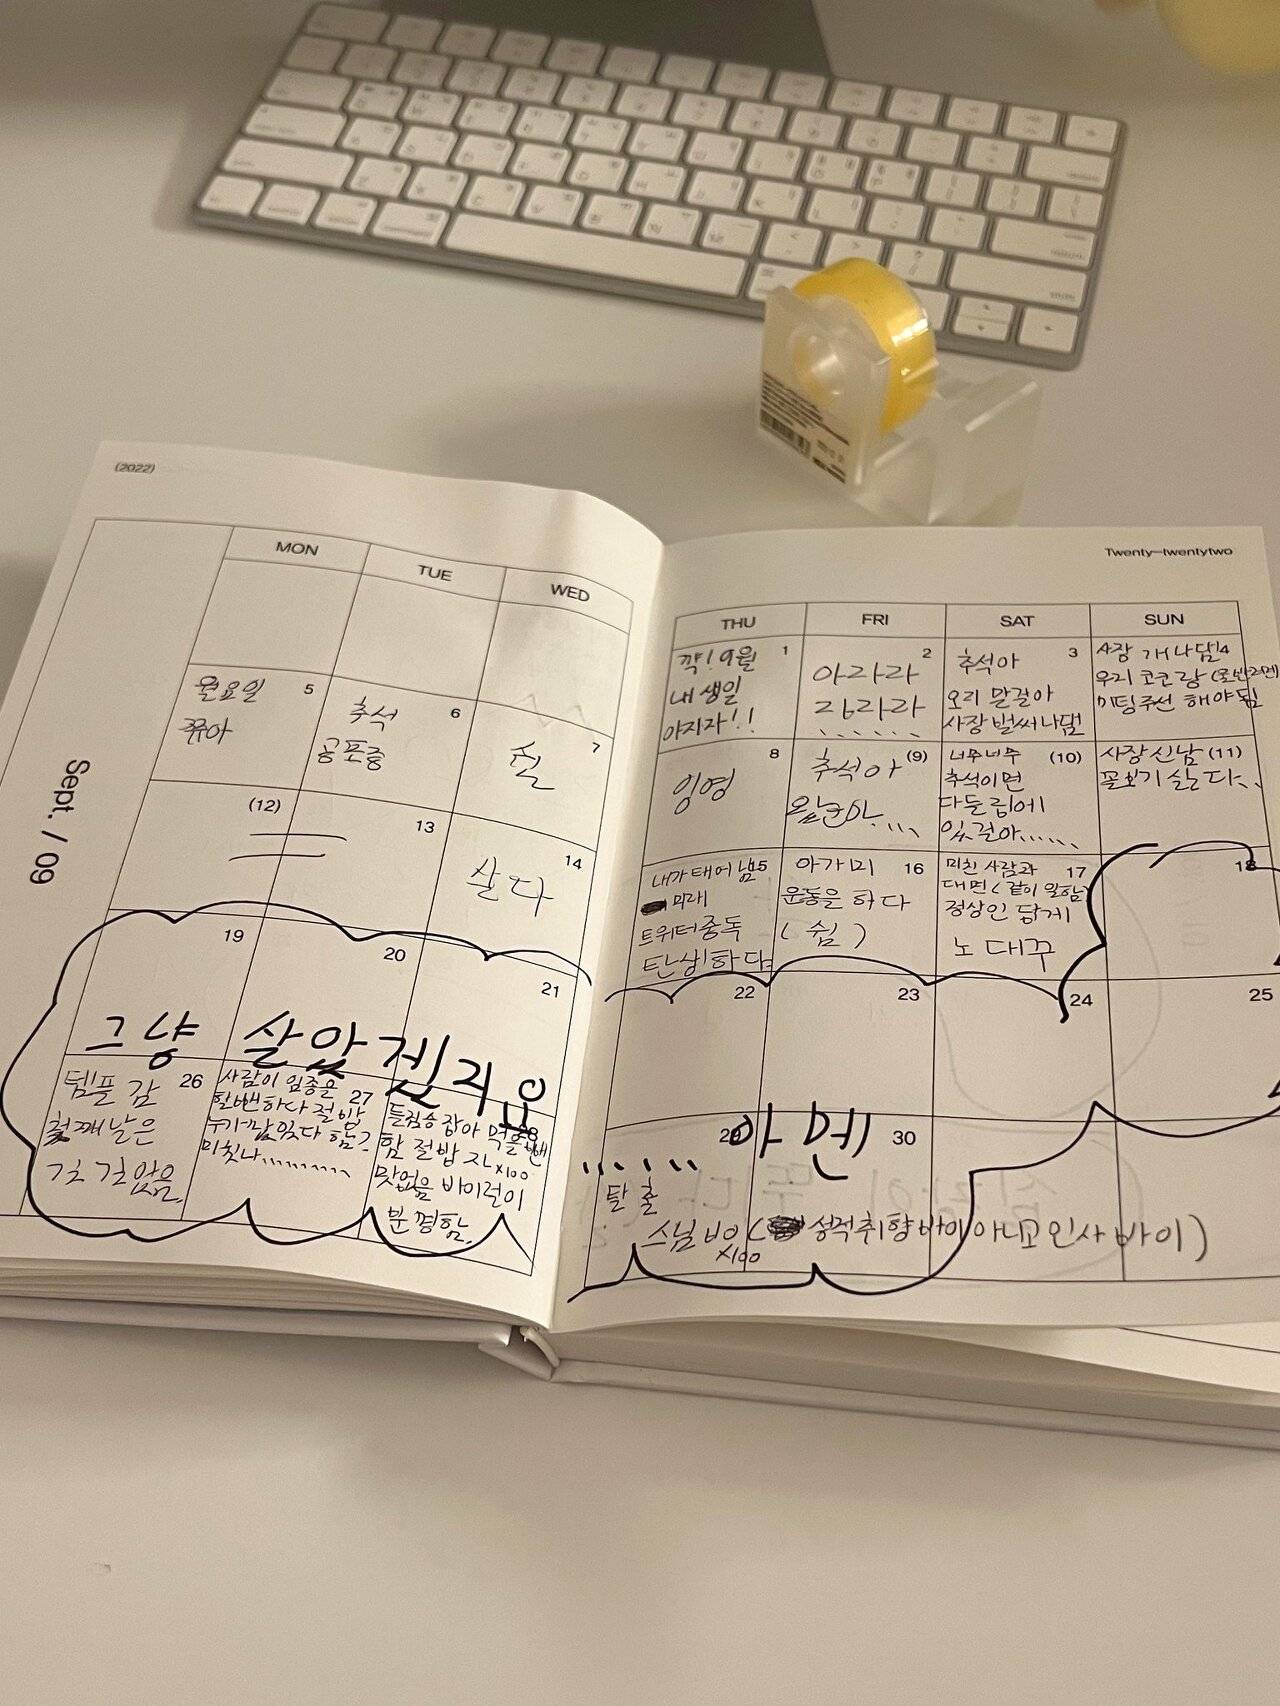 (2022)
Twenty—twentytwo
Sept. / 09
MON
TUE
WED
THU
FRI
SAT
SUN
1
꺅! 9월
내 생일
아자자!!
2
아라라
라라
......
3
추석아
오리 말걸아
사장 벌써 나댐
4
사장 개 나댐
우리 코코랑
미팅주선 해야됨
5
월요일
6
추석
공포증
7
8
잉영
(9)
추석아
(10)
너무너무
추석이면
다들 집에
있걸아......
(11)
사장 신남
꼴보기 싫다..
(12)
13
14
살다
내가 태어남
미래
트위터중독
탄생하다
16
아가미
운동을 하다
(쉼)
17
미친 사람과
대면 (같이 일함)
정상인 답게
노 대꾸
18
19
20
21
22
23
24
25
그냥 살았겠지요
아멘
26
템플 감
첫째날은
걷 걷았음.
27
사람이 임종을
할뻔하다 절밥
누가 맛있다 함?
미쳤나..........
28
들짐승 잡아 먹을뻔
함 절밥 ㅈㄴx100
맛없음 바이럴이
분명함.
29
탈출
30
스님 바이 ( 성적취향바이아니고인사바이)
x100